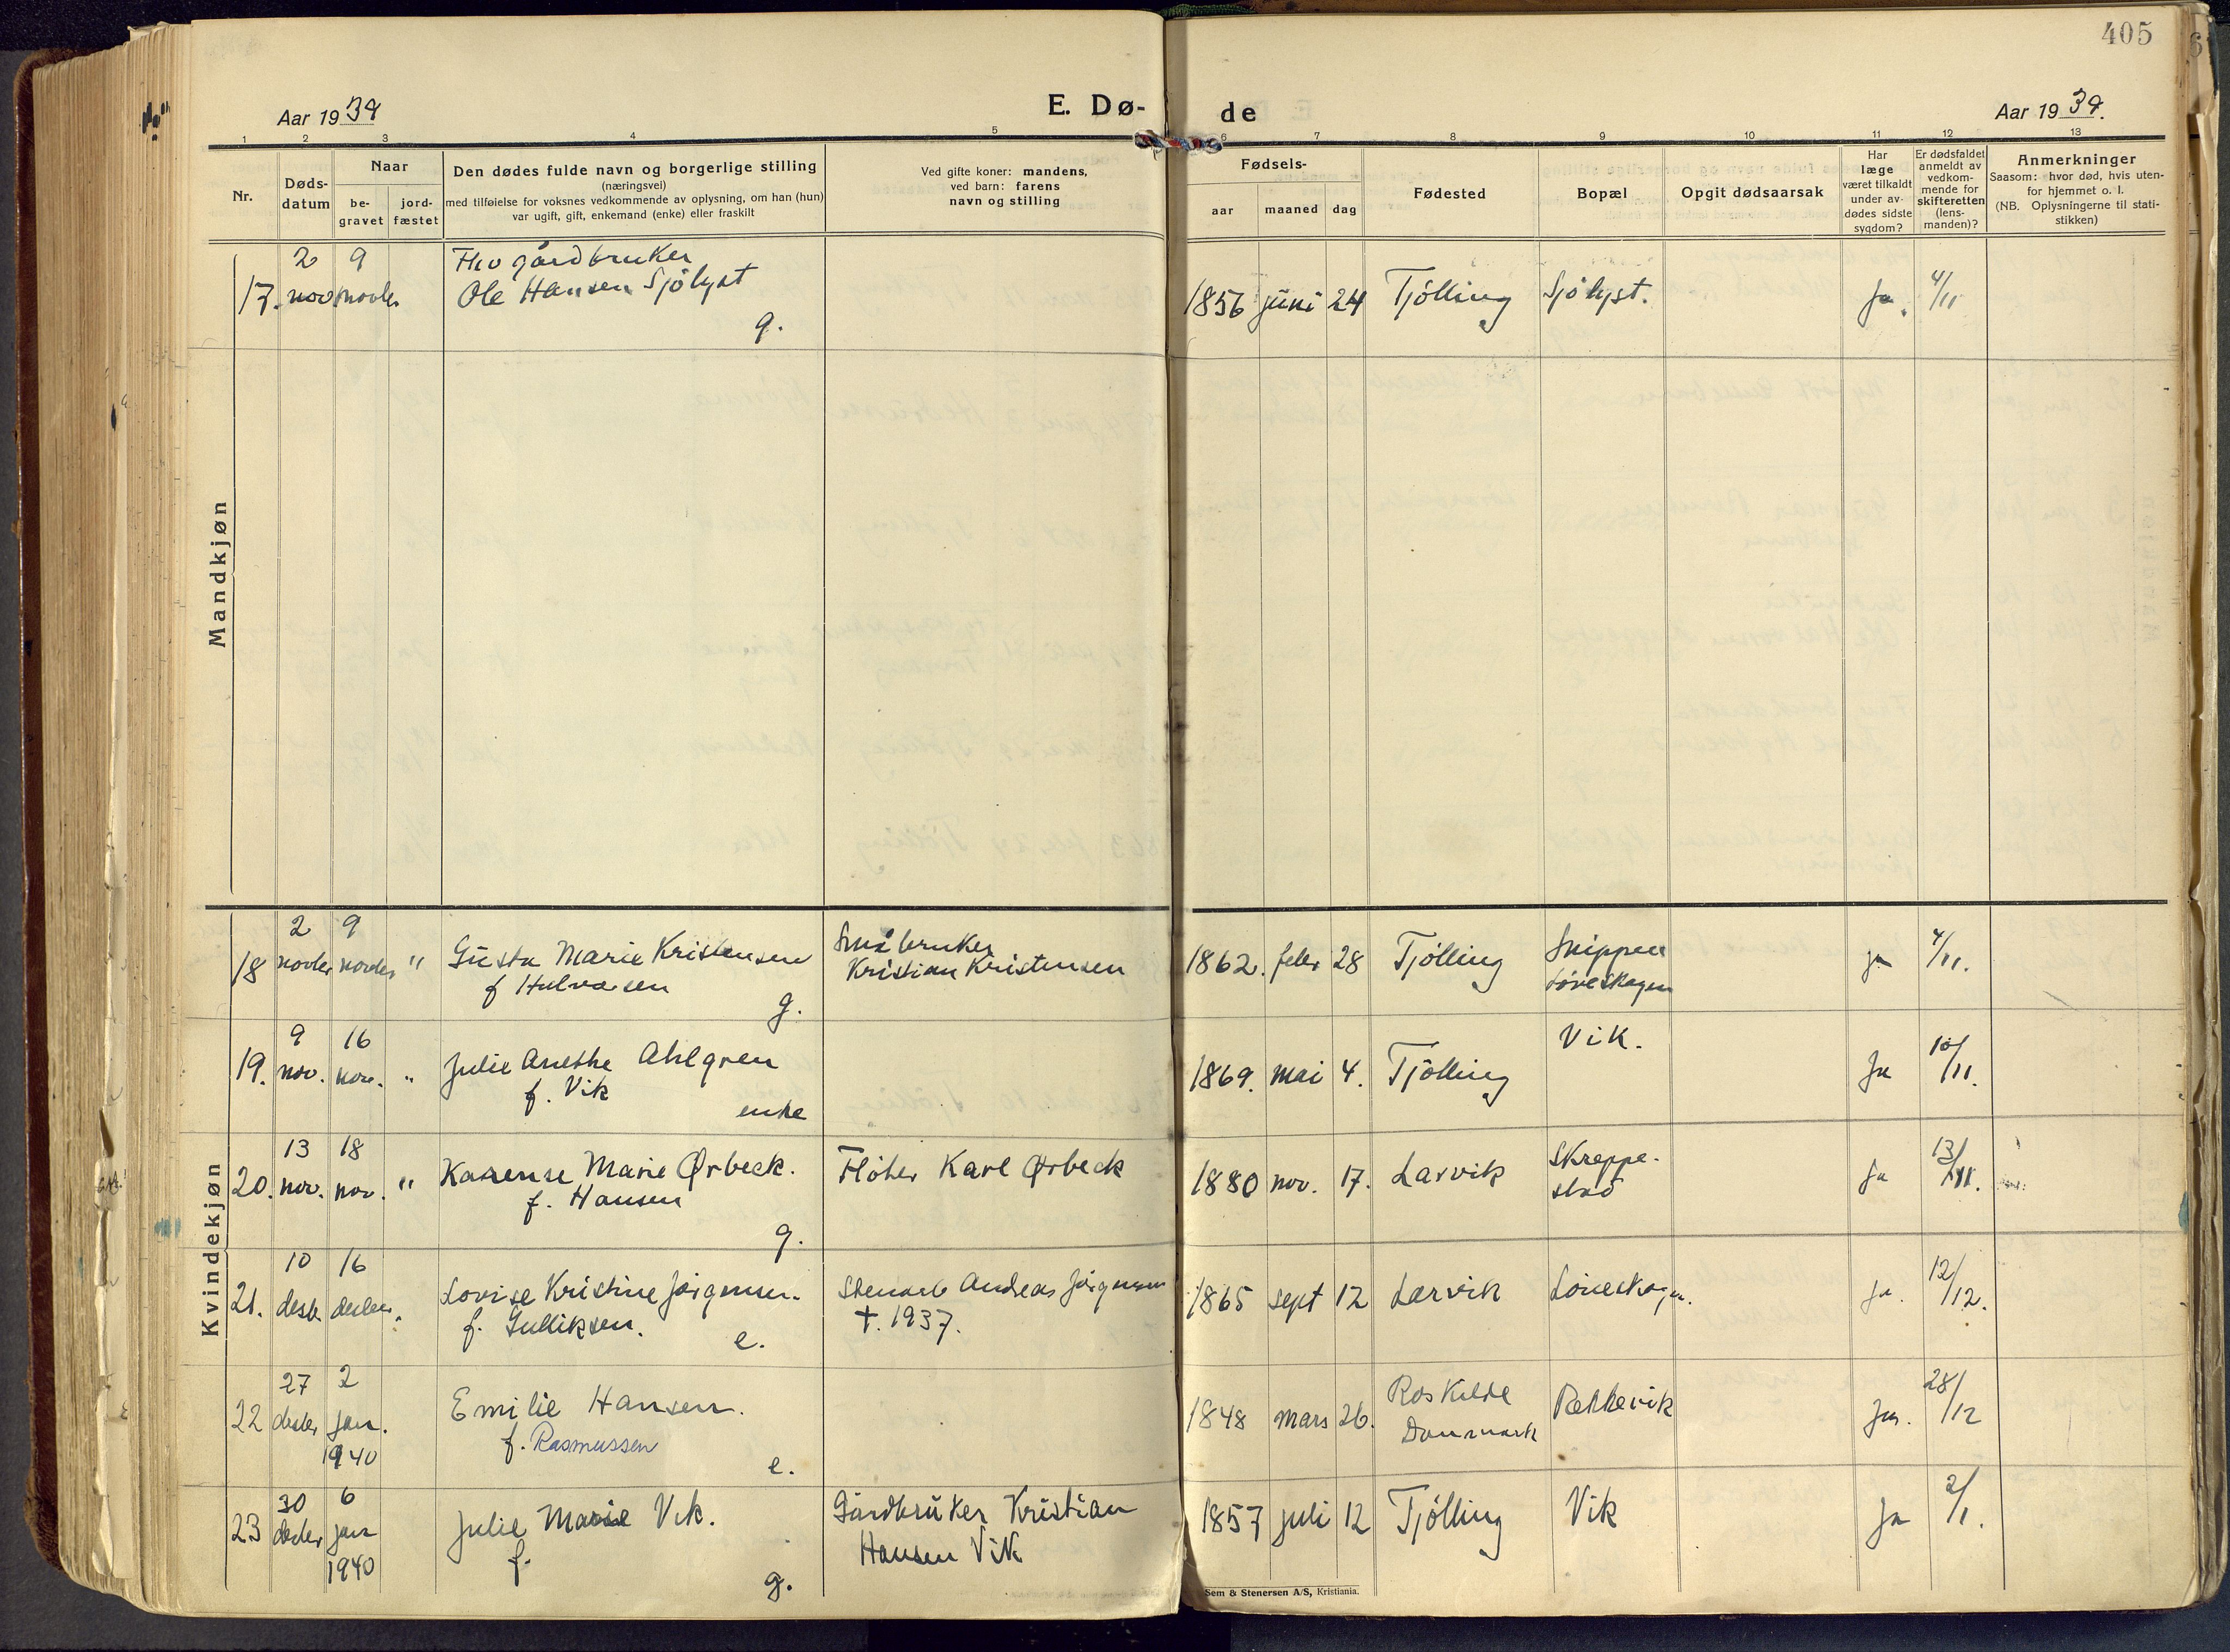 405
Aar 1939
E. Dø-
de
Aar 1939.
1 2 3 4 5 6 7 8 9 10 11 12 13
Nr.
Døds-
datum
Naar
be-
gravet
jord-
fæstet
Den dødes fulde navn og borgerlige stilling
(næringsvei)
med tilføielse for voksnes vedkommende av oplysning, om han (hun)
var ugift, gift, enkemand (enke) eller fraskilt
Ved gifte koner: mandens,
ved barn: farens
navn og stilling
Fødsels-
aar maaned dag
Fødested
Bopæl
Opgit dødsaarsak
Har
læge
været tilkaldt
under av-
dødes sidste
sygdom?
Er dødsfaldet
anmeldt av
vedkom-
mende for
skifteretten
(lens-
manden)?
Anmerkninger
Saasom: hvor død, hvis uten-
for hjemmet o. l.
(NB. Oplysningerne til stati-
stikken)
Mandkjøn
2 9 gårdbruker
17. nov novbr Ole Hansen Sjølyst 1856 juni 24 Tjølling Sjølyst. Ja. 4/11
g.
Kvindekjøn
2 9 Småbruker
18 novbr novbr " Gusta Marie Kristensen Kristian Kristensen 1862. febr 28 Tjølling ja 4/11.
f Halvorsen Løveskogen
g.
9 16 Vik.
19. nov. nov. " Julie Anethe Ahlgren 1869. mai 4. Tjølling Ja 10/11.
f. Vik
enke
13 18 Skreppe-
20. nov. nov. " Karense Marie Ørbeck. Fløter Karl Ørbeck 1880 nov. 17. Larvik stad Ja 13/11.
f. Hansen
g.
10 16
21. desb. desbr. Lovise Kristine Jørgensen. Stenarb Andreas Jørgensen 1865 sept 12 Larvik Løveskogen. ja. 12/12.
f. Gulliksen. † 1937.
e.
27 2 Roskilde
22 desbr jan. Emilie Hansen. 1848 mars 26. Danmark Rekkevik Ja. 28/12
1940 f. Rasmussen
e.
30 6 Gårdbruker Kristian
23 desbr jan Julie Marie Vik. Hansen Vik 1857 juli 12 Tjølling Vik Ja 2/1.
1940 f.
g.
Sem & Stenersen A/S, Kristiania.